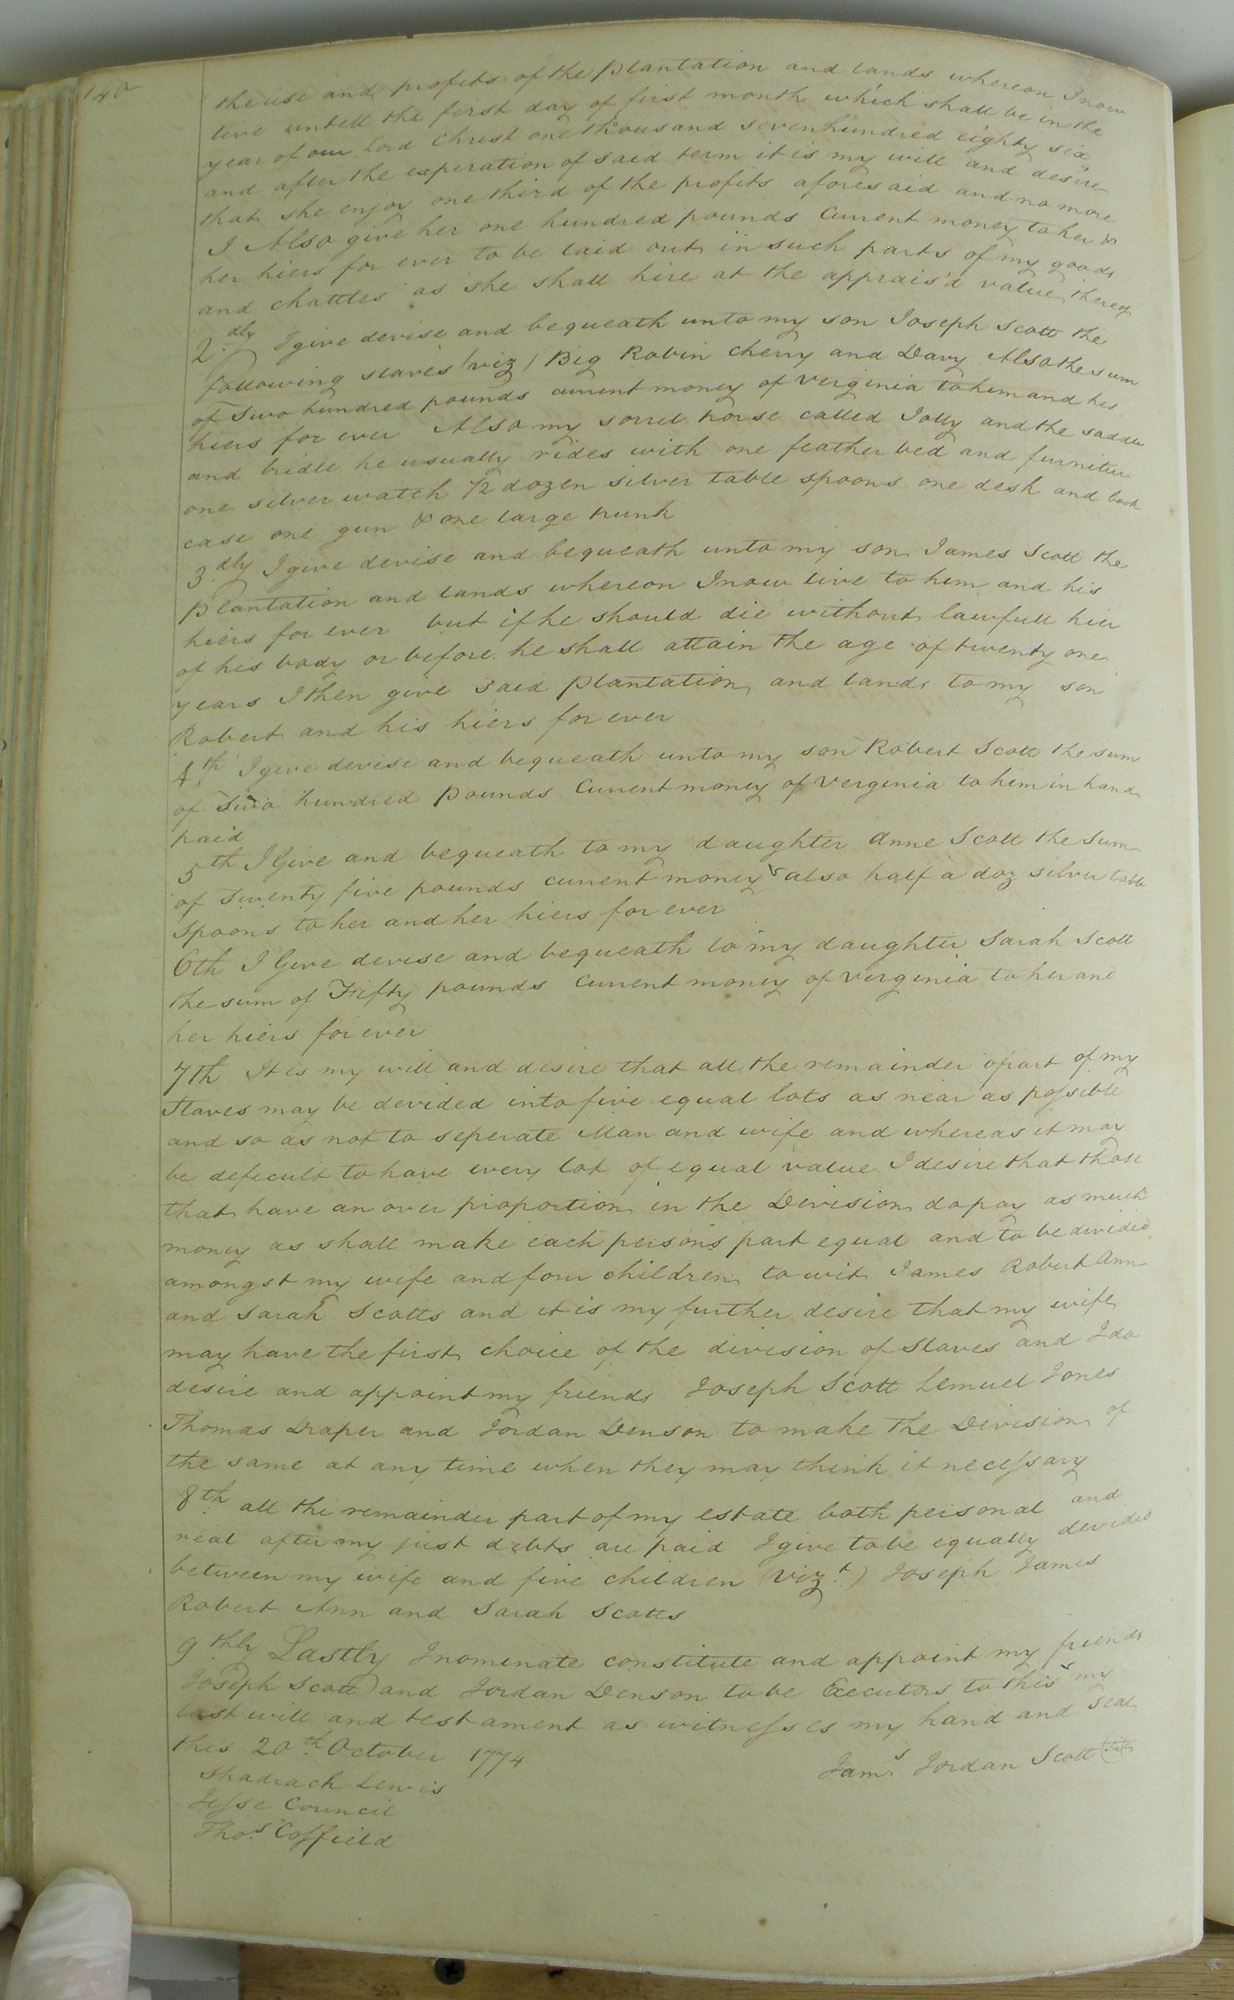 140
the use and profits of the Plantation and lands whereon I now
live untill the first day of first month which shall be in the
year of our Lord Christ one thousand seven hundred eighty six
and after the experation of said term it is my will and desire
that she enjoy one third of the profits aforesaid and no more
I Also give her one hundred pounds Current money to her &
her hiers for ever to be laid out in such parts of my goods
and chattles as she shall hire at the apprais'd value thereof
2dly I give devise and bequeath unto my son Joseph Scott the
following slaves (viz) Big Robin Cherry and Davy Also the sum
of Two hundred pounds current money of Verginia to him and his
hiers for ever Also my sorrel horse called Jolly and the saddle
and bridle he usually rides with one feather bed and furniture
one silver watch 1/2 dozen silver table spoons one desk and book
case one gun & one large trunk
3dly I give devise and bequeath unto my son James Scott the
Plantation and lands whereon I now live to him and his
hiers for ever but if he should die without lawfull hier
of his body or before he shall attain the age of twenty one
years I then give said Plantation and lands to my son
Robert and his hiers for ever
4th I give devise and bequeath unto my son Robert Scott the sum
of Two hundred pounds Current money of Verginia to him in hand
paid
5th I Give and bequeath to my daughter Anne Scott the Sum
of Twenty five pounds current money & also half a doz silver table
spoons to her and her hiers for ever
6th I Give devise and bequeath to my daughter Sarah Scott
the sum of Fifty pounds Current money of Verginia to her and
her hiers for ever
7th It is my will and desire that all the remainder part of my
Slaves may be devided into five equal lots as near as possible
and so as not to seperate Man and wife and whereas it may
be deficult to have every lot of equal value I desire that those
that have an over proportion in the Devision do pay as much
money as shall make each persons part equal and to be divided
amongst my wife and four children to wit James Robert Ann
and Sarah Scotts and it is my further desire that my wife
may have the first choice of the division of Slaves and I do
desire and appoint my friends Joseph Scott Lemuel Jones
Thomas Draper and Jordan Denson to make the Devision of
the same at any time when they may think it necessary
8th all the remainder part of my estate both personal and
real after my just debts are paid I give to be equally devided
between my wife and five children (vizt) Joseph James
Robert Ann and Sarah Scotts
9thly Lastly I nominate constitute and appoint my friends
Joseph Scott and Jordan Denson to be Executors to this my
last will and testament as witnesses my hand and seal
this 20th October 1774
Jams Jordan Scott
Shadrach Lewis
Jesse Council
Thos Coffield